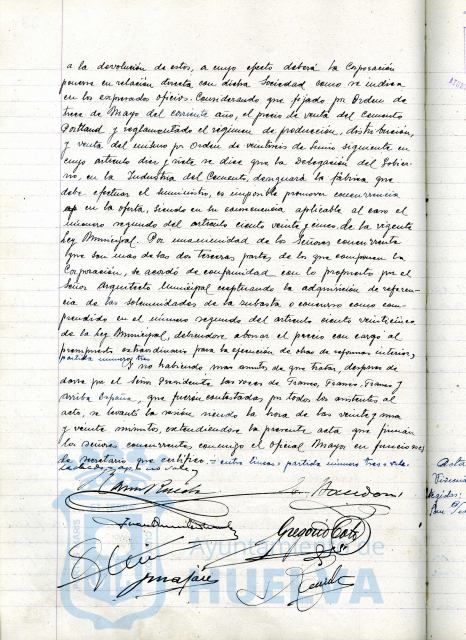 a la devolución de estos, a cuyo efecto deberá la Corporación
ponerse en relación directa con dicha Sociedad como se indica
en los expresados oficios. Considerando que fijado por Orden de
trece de Mayo del corriente año, el precio de venta del Cemento
Portland y reglamentado el régimen de producción, distribución,
y venta del mismo por Orden de veintiseis de Junio siguiente en
cuyo artículo diez y siete se dice que la Delegación del Gobier-
no, en la Industria del Cemento, designará la fábrica que
debe efectuar el suministro, es imposible promover concurrencia
en la oferta, siendo en su consecuencia aplicable al caso el
número segundo del artículo ciento veinte y cinco de la vigente
Ley Municipal. Por unanimidad de los Señores concurrentes
que son mas de las dos terceras partes de los que componen la
Corporación, se acordó de conformidad con lo propuesto por el
Señor Arquitecto Municipal exceptuando la adquisición de referen-
cia de las solemnidades de la subasta o concurso como com-
prendido en el número segundo del artículo ciento veinticinco
de la Ley Municipal, debiendose abonar el precio con cargo al
presupuesto extraordinario para la ejecución de obras de reformas interior,
partida número tres
Y no habiendo mas asuntos de que tratar, despues de
darse por el Señor Presidente las voces de Franco, Franco, Franco y
Arriba España, que fueron contestadas por todos los asistentes al
acto, se levantó la sesión siendo la hora de las veinte y una
y veinte minutos, extendiendose la presente acta que firman
los señores concurrentes conmigo el Oficial Mayor en funciones
de Secretario que certifico. = entre lineas = partida número tres = vale
Gregorio
Ayuntamiento de
HUELVA